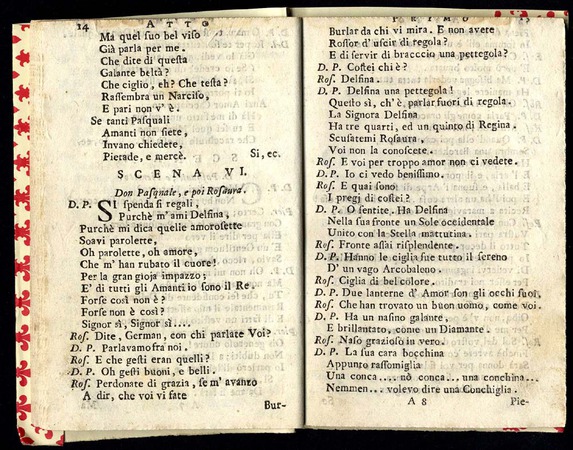 14 ATTO
Ma quel suo bel viso
Già parla per me.
Che dite di questa
Galante beltà?
Che ciglio, eh? Che testa?
Rassembra un Narciso,
E pari non v' è.
Se tanti Pasquali
Amanti non siete,
Invano chiedete,
Pietade, e mercè. Si, ec.
SCENA VI.
Don Pasquale, e poi Rosaura.
D. P. SI spenda si regali,
Purchè m' ami Delfina,
Purchè mi dica quelle amorosette
Soavi parolette,
Oh parolette, oh amore,
Che m' han rubato il cuore!
Per la gran gioja impazzo;
E' di tutti gli Amanti io sono il Re.
Forse così non è?
Forse non è così?
Signor sì, Signor sì....
Ros. Dite, German, con chi parlate Voi?
D. P. Parlavamo fra noi,
Ros. E che gesti eran quelli?
D. P. Oh gesti buoni, e belli.
Ros. Perdonate di grazia, se m' avanzo
A dir, che voi vi fate
Bur-
PRIMO 15
Burlar da chi vi mira. E non avete
Rossor d' uscir di regola?
E di servir di braccio una pettegola?
D. P. Costei chi è?
Ros. Delfina.
D. P. Delfina una pettegola!
Questo sì, ch' è parlar fuori di regola.
La Signora Delfina
Ha tre quarti, ed un quinto di Regina.
Scusatemi Rosaura.
Voi non la conoscete.
Ros. E voi per troppo amor non ci vedete.
D. P. Io ci vedo benissimo.
Ros. E quai sono
I pregj di costei?
D. P. O sentite. Ha Delfina
Nella sua fronte un Sole occidentale
Unito con la Stella mattutina.
Ros. Fronte assai risplendente.
D. P. Hanno le ciglia sue tutto il sereno
D' un vago Arcobaleno.
Ros. Ciglia di bel colore.
D. P. Due lanterne d' Amor son gli occhi suoi,
Ros. Che han trovato un buon uomo, come voi.
D. P. Ha un nasino galante,
E brillantato, come un Diamante.
Ros. Naso grazioso in vero.
D. P. La sua cara bocchina
Appunto rassomiglia
Una conca.... nò conca... una conchina...
Nemmen... volevo dire una Conchiglia.
A 8 Pie-